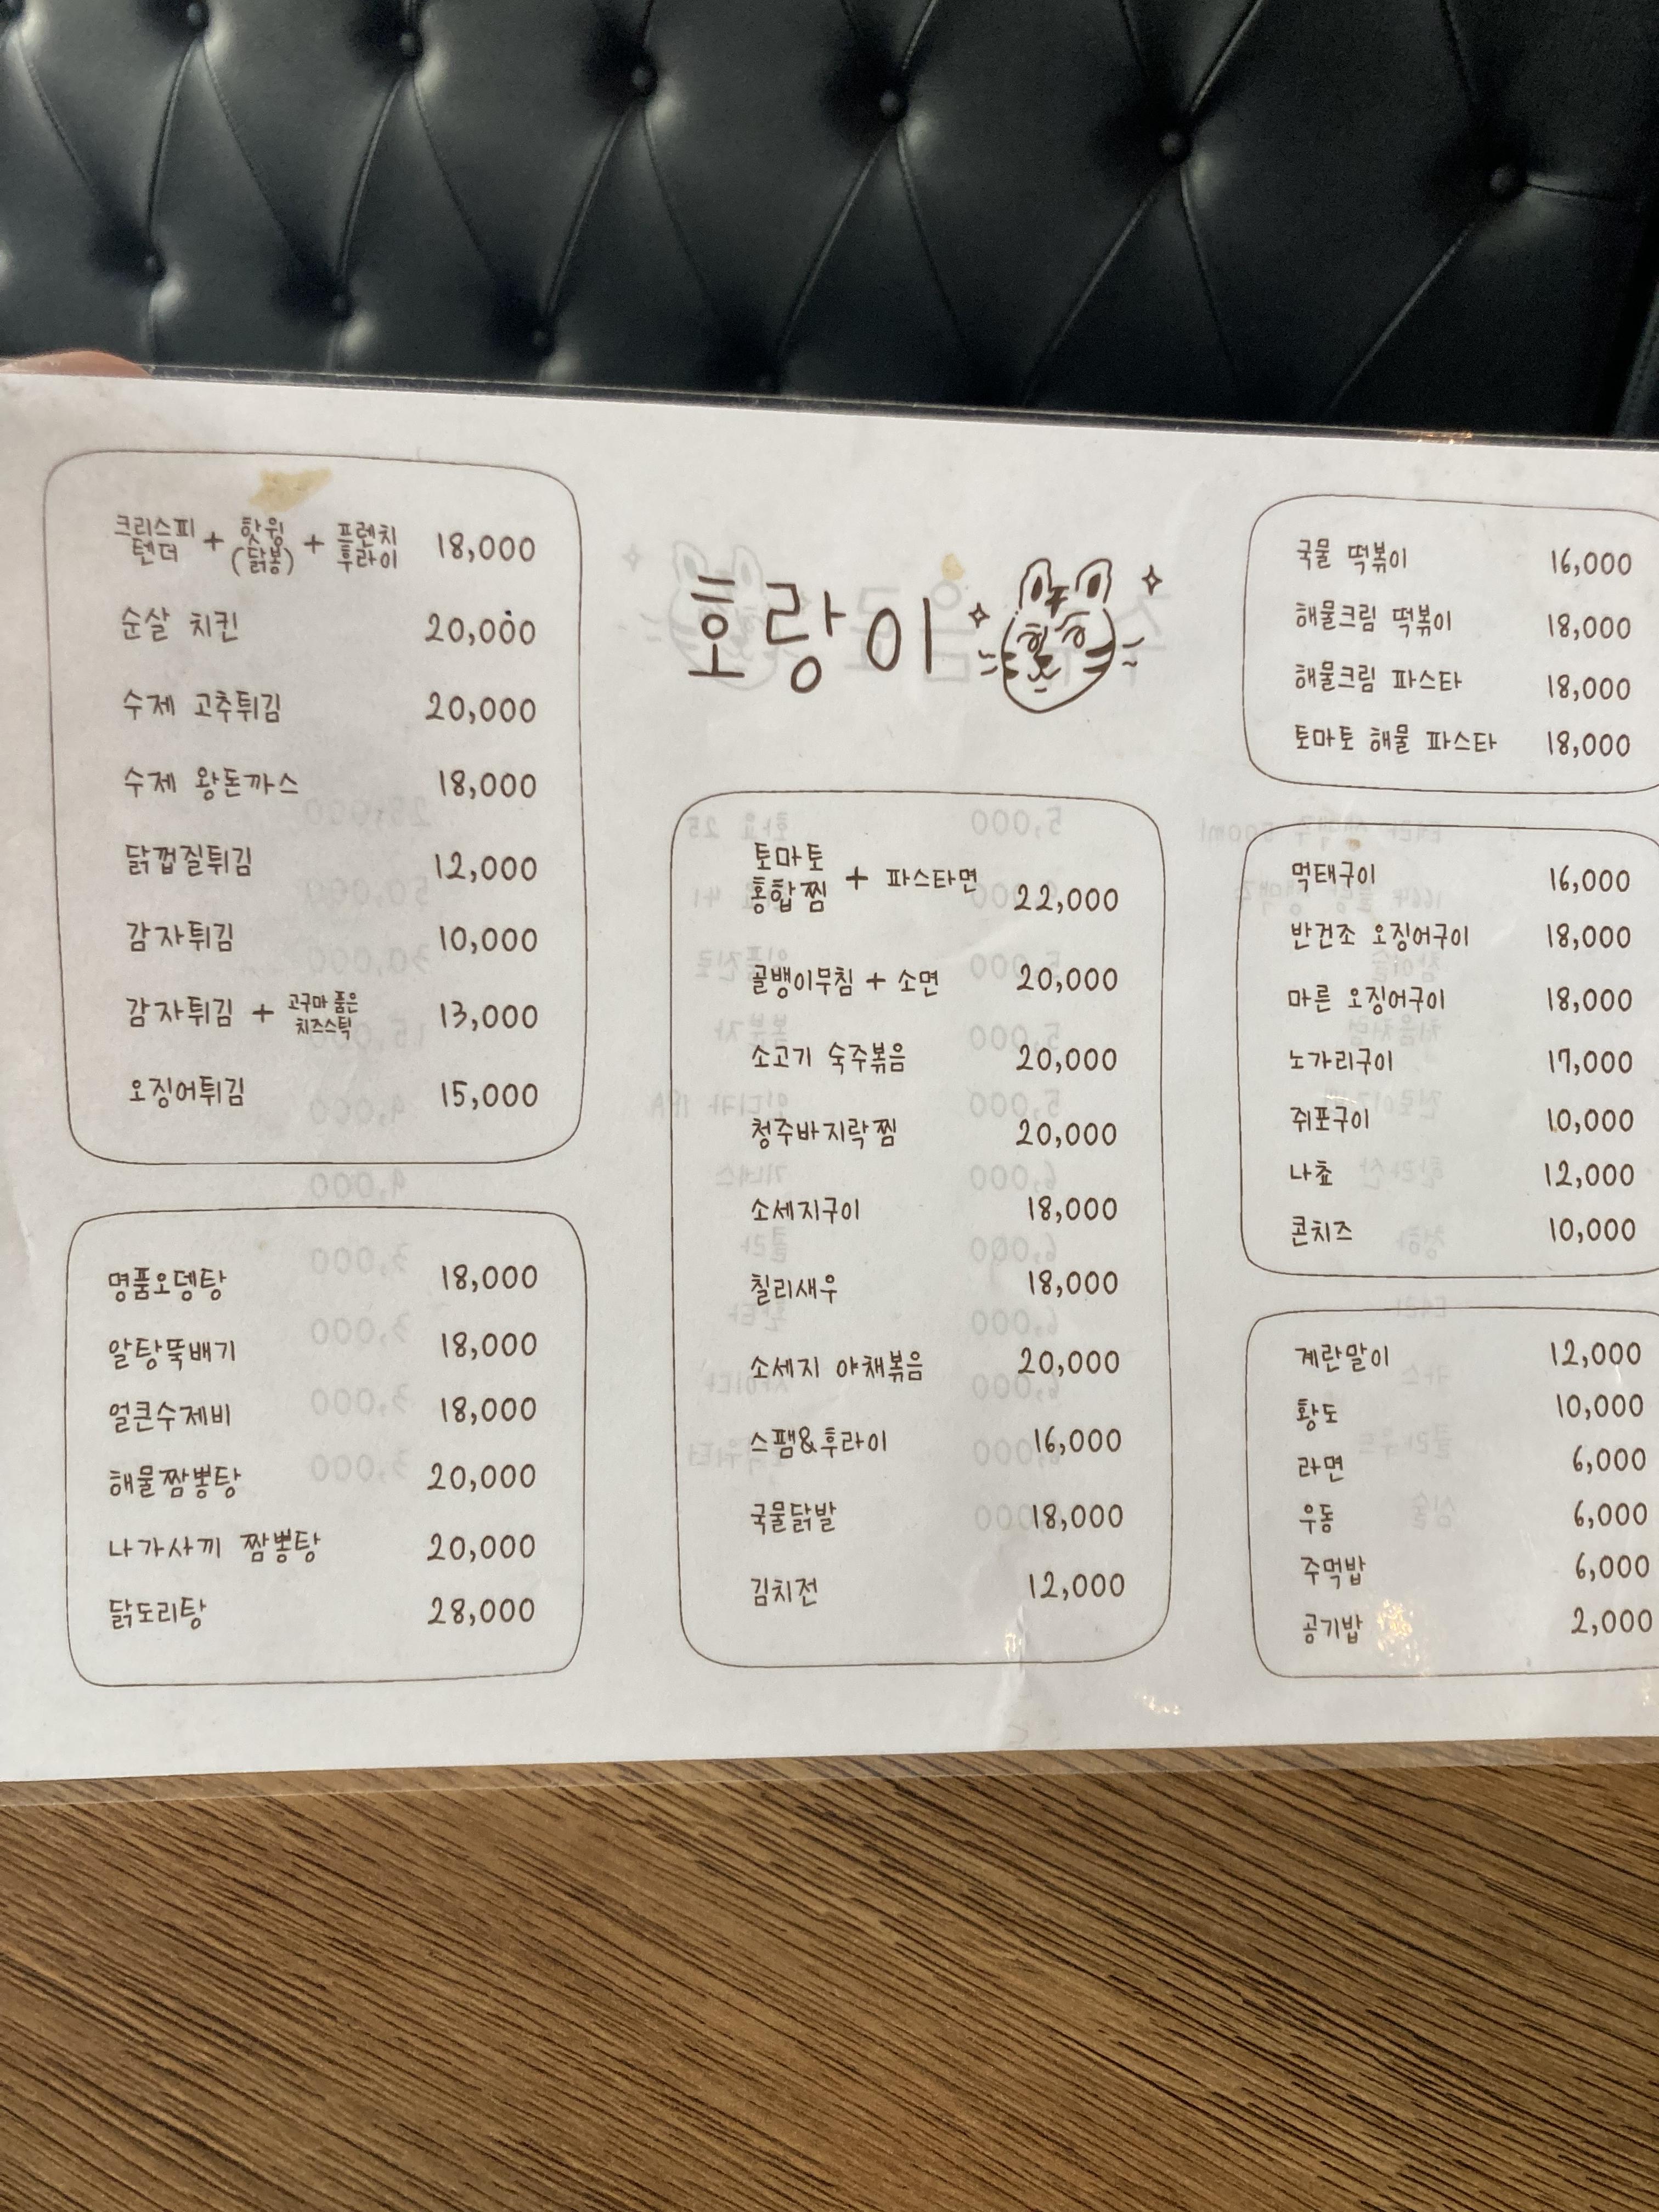 크리스피 텐더 + 핫윙 (닭봉) + 프렌치 후라이 18,000
순살 치킨 20,000
수제 고추튀김 20,000
수제 왕돈까스 18,000
닭껍질튀김 12,000
감자튀김 10,000
감자튀김 + 고구마 품은 치즈스틱 13,000
오징어튀김 15,000
명품오뎅탕 18,000
알탕뚝배기 18,000
얼큰수제비 18,000
해물짬뽕탕 20,000
나가사끼 짬뽕탕 20,000
닭도리탕 28,000
호랑이
토마토 홍합찜 + 파스타면 22,000
골뱅이무침 + 소면 20,000
소고기 숙주볶음 20,000
청주바지락찜 20,000
소세지구이 18,000
칠리새우 18,000
소세지 야채볶음 20,000
스팸&후라이 16,000
국물닭발 18,000
김치전 12,000
국물 떡볶이 16,000
해물크림 떡볶이 18,000
해물크림 파스타 18,000
토마토 해물 파스타 18,000
먹태구이 16,000
반건조 오징어구이 18,000
마른 오징어구이 18,000
노가리구이 17,000
쥐포구이 10,000
나쵸 12,000
콘치즈 10,000
계란말이 12,000
황도 10,000
라면 6,000
우동 6,000
주먹밥 6,000
공기밥 2,000